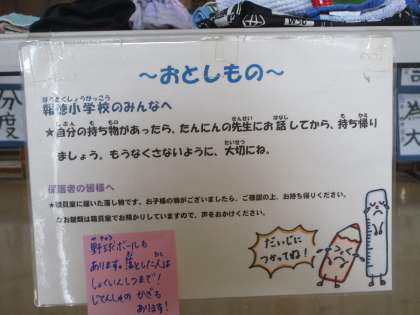 ～おとしもの～
報徳小学校のみんなへ
★自分の持ち物があったら、たんにんの先生にお話してから、持ち帰り
ましょう。もうなくさないように、大切にね。
保護者の皆様へ
★職員室に届いた落し物です。お子様の物がございましたら、ご確認の上、お持ち帰りください。
なお鍵類は職員室でお預かりしていますので、声をおかけください。
だいじに
つかってね!
野球ボールも
あります。落とした人は
しょくいんしつまで!
じてんしゃのかぎも
あります!